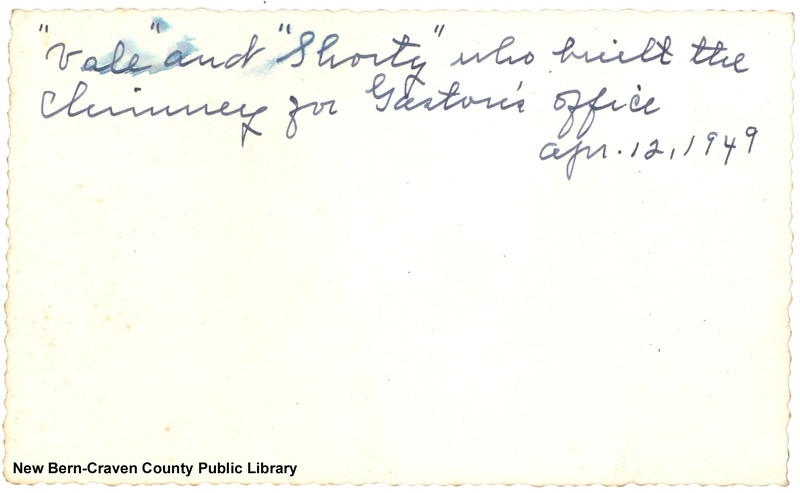 "Vale" and "Shorty" who built the
chimney for Gaston's office
Apr. 12, 1949
New Bern-Craven County Public Library